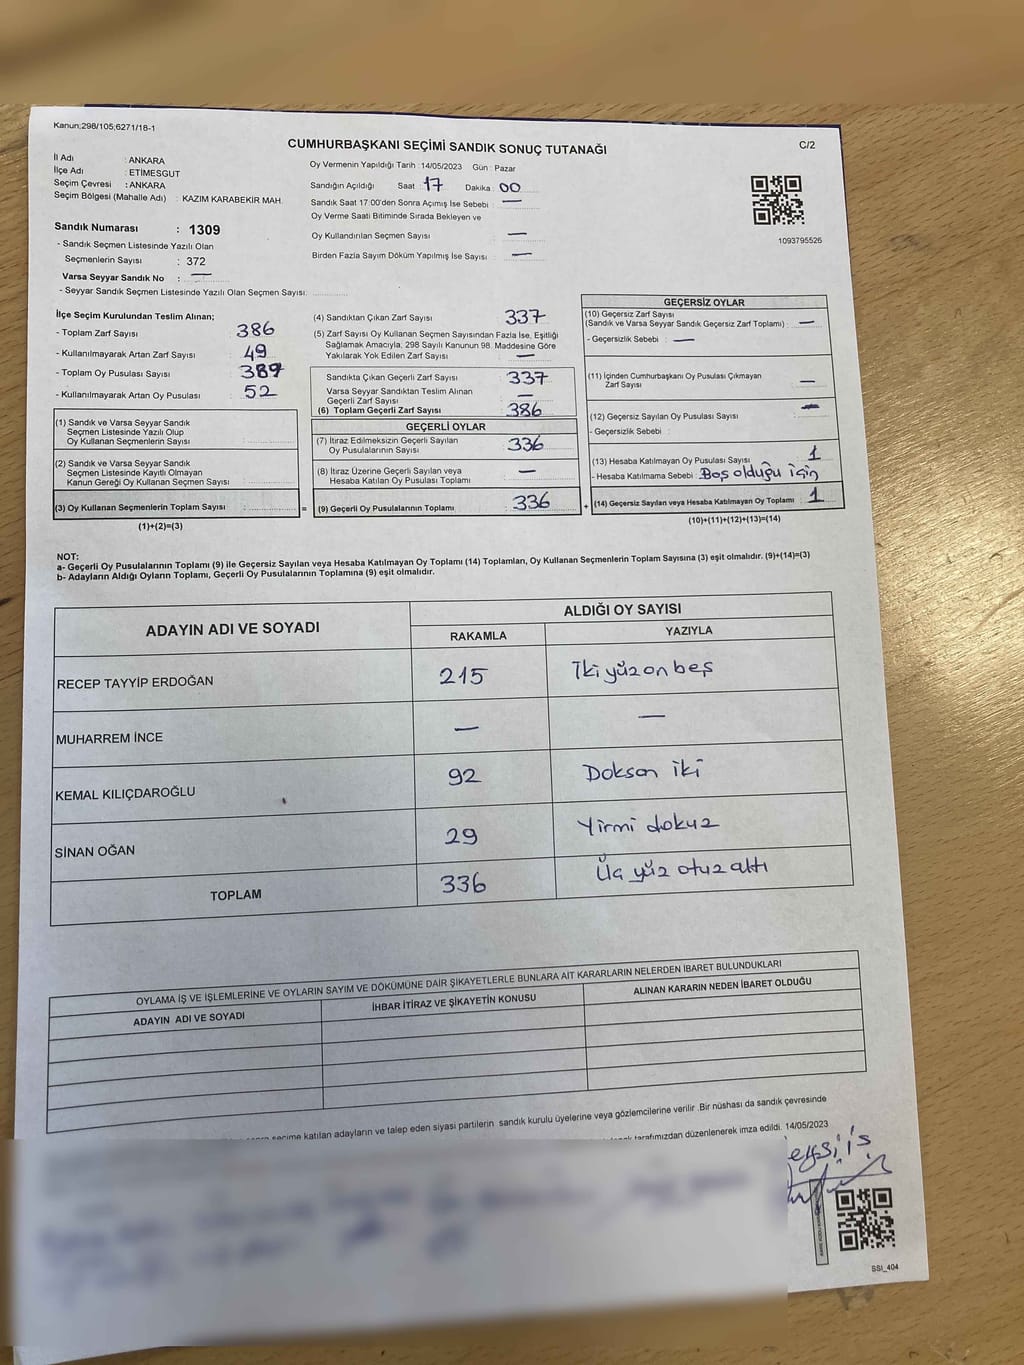 Kanun;298/105;6271/18-1
CUMHURBAŞKANI SEÇİMİ SANDIK SONUÇ TUTANAĞI
C/2
İl Adı : ANKARA
İlçe Adı : ETİMESGUT
Seçim Çevresi : ANKARA
Seçim Bölgesi (Mahalle Adı) : KAZIM KARABEKİR MAH.
Sandık Numarası : 1309
- Sandık Seçmen Listesinde Yazılı Olan
Seçmenlerin Sayısı : 372
Varsa Seyyar Sandık No : —
- Seyyar Sandık Seçmen Listesinde Yazılı Olan Seçmen Sayısı:
Oy Vermenin Yapıldığı Tarih : 14/05/2023 Gün : Pazar
Sandığın Açıldığı Saat : 17 Dakika : 00
Sandık Saat 17:00'den Sonra Açılmış İse Sebebi : —
Oy Verme Saati Bitiminde Sırada Bekleyen ve
Oy Kullandırılan Seçmen Sayısı —
Birden Fazla Sayım Döküm Yapılmış İse Sayısı : —
1093795526
İlçe Seçim Kurulundan Teslim Alınan;
- Toplam Zarf Sayısı 386
- Kullanılmayarak Artan Zarf Sayısı 49
- Toplam Oy Pusulası Sayısı 389
- Kullanılmayarak Artan Oy Pusulası 52
(1) Sandık ve Varsa Seyyar Sandık
Seçmen Listesinde Yazılı Olup
Oy Kullanan Seçmenlerin Sayısı :
(2) Sandık ve Varsa Seyyar Sandık
Seçmen Listesinde Kayıtlı Olmayan
Kanun Gereği Oy Kullanan Seçmen Sayısı :
(3) Oy Kullanan Seçmenlerin Toplam Sayısı : =
(1)+(2)=(3)
(4) Sandıktan Çıkan Zarf Sayısı 337
(5) Zarf Sayısı Oy Kullanan Seçmen Sayısından Fazla İse, Eşitliği
Sağlamak Amacıyla, 298 Sayılı Kanunun 98. Maddesine Göre
Yakılarak Yok Edilen Zarf Sayısı —
Sandıkta Çıkan Geçerli Zarf Sayısı 337
Varsa Seyyar Sandıktan Teslim Alınan
Geçerli Zarf Sayısı —
(6) Toplam Geçerli Zarf Sayısı 386
GEÇERLİ OYLAR
(7) İtiraz Edilmeksizin Geçerli Sayılan
Oy Pusulalarının Sayısı 336
(8) İtiraz Üzerine Geçerli Sayılan veya
Hesaba Katılan Oy Pusulası Toplamı —
(9) Geçerli Oy Pusulalarının Toplamı 336 +
GEÇERSİZ OYLAR
(10) Geçersiz Zarf Sayısı
(Sandık ve Varsa Seyyar Sandık Geçersiz Zarf Toplamı) : —
- Geçersizlik Sebebi : —
(11) İçinden Cumhurbaşkanı Oy Pusulası Çıkmayan
Zarf Sayısı —
(12) Geçersiz Sayılan Oy Pusulası Sayısı —
- Geçersizlik Sebebi :
(13) Hesaba Katılmayan Oy Pusulası Sayısı 1
- Hesaba Katılmama Sebebi : Boş olduğu için
(14) Geçersiz Sayılan veya Hesaba Katılmayan Oy Toplamı : 1
(10)+(11)+(12)+(13)=(14)
NOT:
a- Geçerli Oy Pusulalarının Toplamı (9) ile Geçersiz Sayılan veya Hesaba Katılmayan Oy Toplamı (14) Toplamları, Oy Kullanan Seçmenlerin Toplam Sayısına (3) eşit olmalıdır. (9)+(14)=(3)
b- Adayların Aldığı Oyların Toplamı, Geçerli Oy Pusulalarının Toplamına (9) eşit olmalıdır.
ADAYIN ADI VE SOYADI
ALDIĞI OY SAYISI
RAKAMLA YAZIYLA
RECEP TAYYİP ERDOĞAN 215 İki yüz on beş
MUHARREM İNCE — —
KEMAL KILIÇDAROĞLU 92 Doksan iki
SİNAN OĞAN 29 Yirmi dokuz
TOPLAM 336 Üç yüz otuz altı
OYLAMA İŞ VE İŞLEMLERİNE VE OYLARIN SAYIM VE DÖKÜMÜNE DAİR ŞİKAYETLERLE BUNLARA AİT KARARLARIN NELERDEN İBARET BULUNDUKLARI
ADAYIN ADI VE SOYADI İHBAR İTİRAZ VE ŞİKAYETİN KONUSU ALINAN KARARIN NEDEN İBARET OLDUĞU
seçime katılan adayların ve talep eden siyasi partilerin sandık kurulu üyelerine veya gözlemcilerine verilir .Bir nüshası da sandık çevresinde
tarafımızdan düzenlenerek imza edildi. 14/05/2023
SSI_404